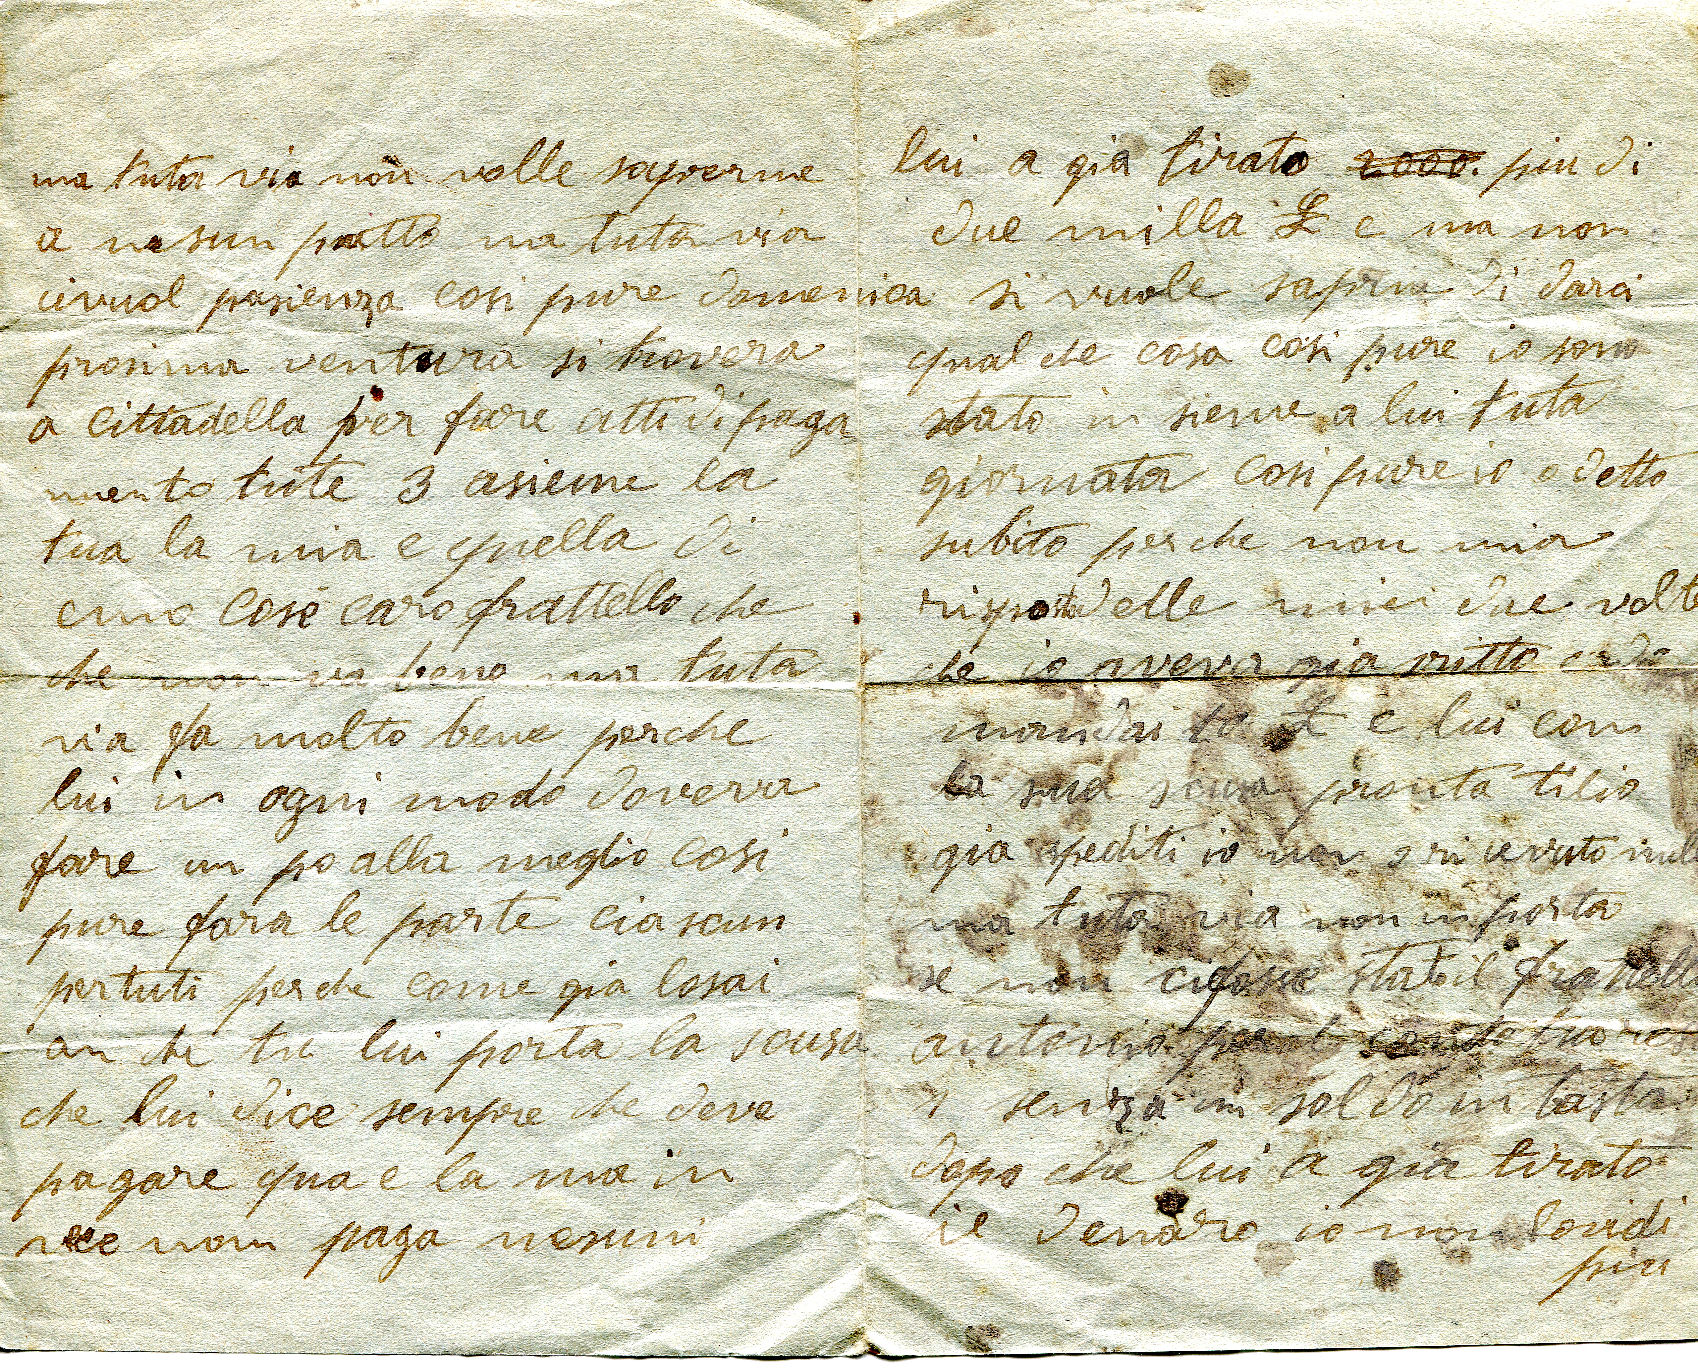 ma tuta via non volle saperne
a nesun patto ma tuta via
civuol pasienza cosi pure domenica
prosima ventura si trovera
a cittadella per fare atti di paga
mento tute 3 asieme la
tua la mia e quella di
cosi caro frattello che
che non va bene ma tuta
via fa molto bene perche
lui in ogni modo dovera
fare un po alla meglio cosi
pure fara le parte ciascun
pertuti perche come gia losai
an che tu lui porta la scusa
che lui dice sempre che deve
pagare qua e la ma in
vece non paga nesuni
lui a gia tirato 2000. piu di
due milla £ e ma non
si vuole saperne di darci
qual che cosa cosi pure io sono
stato in sieme a lui tuta
giornata cosi pure io o detto
subito perche non mia
risposto delle miei due volte
che io aveva gia sritto
mandai £ e lui con
la sua scusa pronta tilio
gia spediti io non o ri cevuto
ma tuta via non in porta
se non cifosse stato il fratello
antonio
senza un soldo in tasta
dopo che lui a gia tirato
il denaro io non lovidi
piu